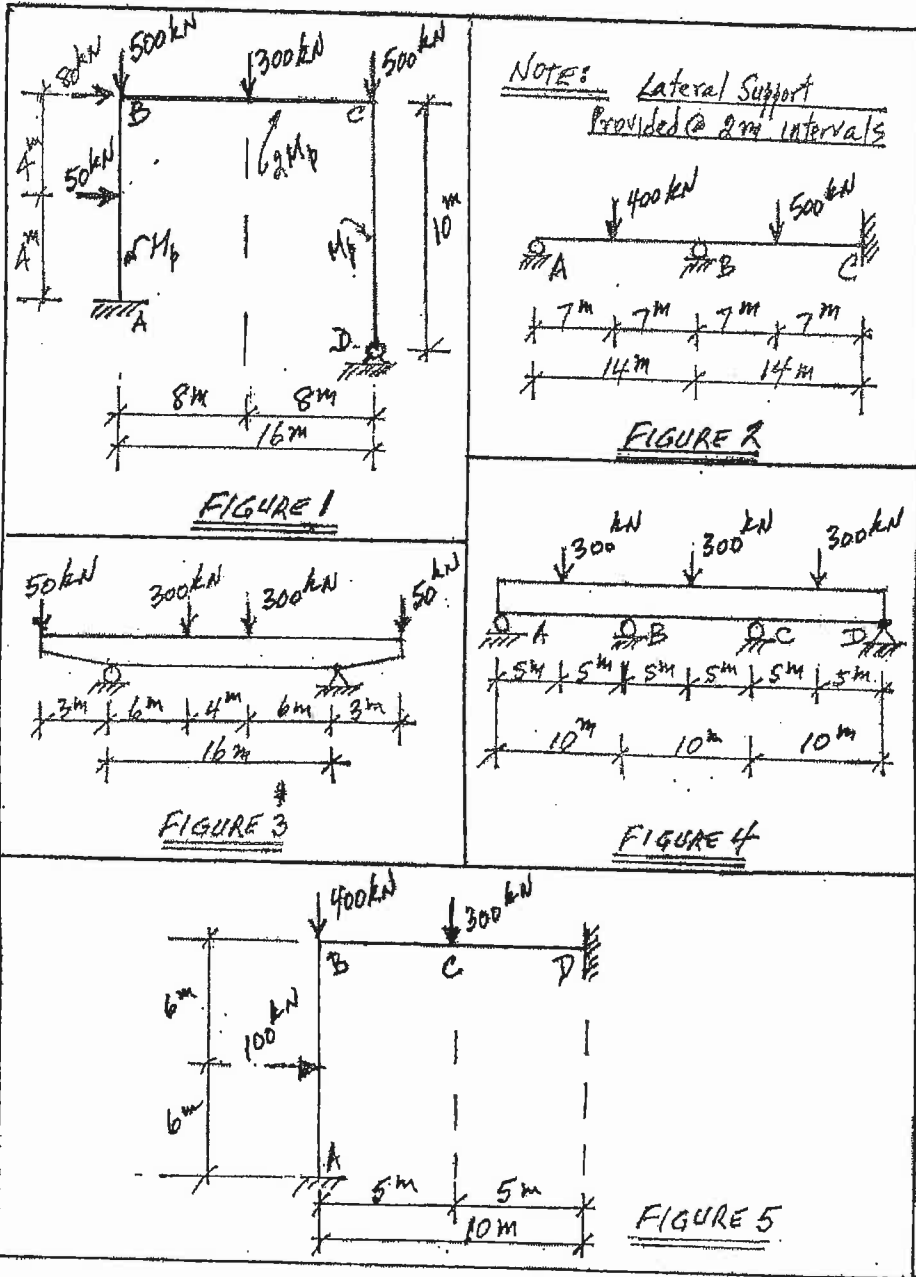 500kN
80kN
300kN
500kN
B
C
2Mp
4m
50kN
4m
Mp
Mp
10m
A
D
8m
8m
16m
FIGURE 1
NOTE: Lateral Support
Provided @ 2m intervals
400kN
500kN
A
B
C
7m
7m
7m
7m
14m
14m
FIGURE 2
50kN
300kN
300kN
50kN
3m
6m
4m
6m
3m
16m
FIGURE 3
300kN
300kN
300kN
A
B
C
D
5m
5m
5m
5m
5m
5m
10m
10m
10m
FIGURE 4
400kN
300kN
B
C
D
6m
100kN
6m
A
5m
5m
10m
FIGURE 5